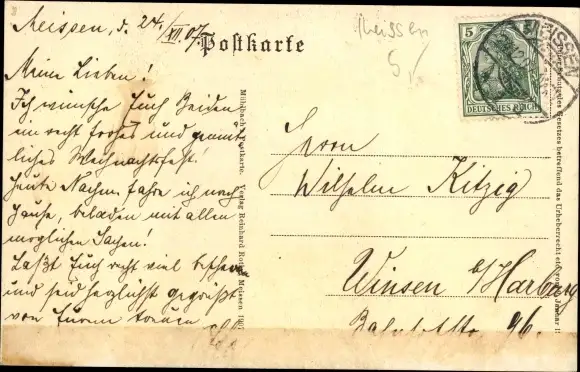 Meissen, d. 24./XII.07.
Postkarte
Meissen
5/
5
DEUTSCHES REICH
MEISSEN
Meine Lieben!
Ich wünsche Euch Beiden
ein recht frohes und gemüt-
liches Weihnachtsfest!
Heute Nachm. fahre ich nach
Hause, beladen mit allen
möglichen Sachen!
Laßt Euch recht viel bescheren
und seid herzlichst gegrüßt
von Eurem treuen
Mühlbach-Postkarte. Verlag Reinhard Rothe, Meissen 1907
Herrn
Wilhelm Kitzig
Winsen b/Harburg
Bahnhofstr. 96.
des Gesetzes betreffend das Urheberrecht